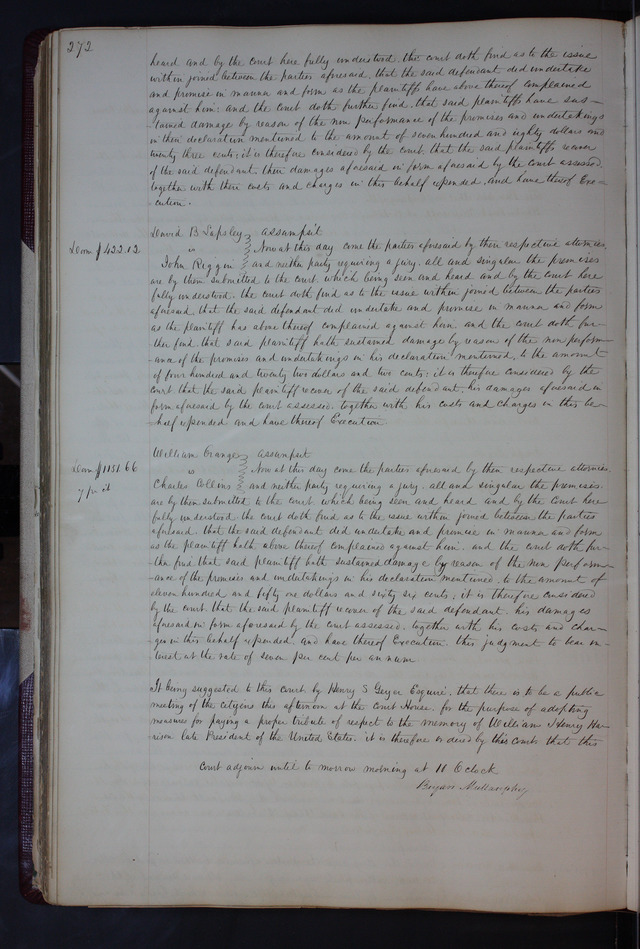 272
heard and by the court here fully understood. the court doth find as to the issue
within joined between the parties aforesaid, that the said defendant did undertake
and promise in manner and form as the plaintiffs have above thereof complained
against him: and the court doth further find, that said plaintiffs have sus-
-tained damage by reason of the non performance of the promises and undertakings
in their declaration mentioned to the amount of seven hundred and eighty dollars and
twenty three cents; it is therefore considered by the court that the said plaintiffs recover
of the said defendant their damages aforesaid in form aforesaid by the court assessed,
together with their costs and charges in this behalf expended, and have thereof Exe-
-cution.
B Lapsley assumpsit
Dam $422.02 vs Now at this day come the parties aforesaid by their respective attornies,
John Riggin and neither party requiring a jury, all and singular the premises
are by them submitted to the court which being seen and heard and by the court here
fully understood, the court doth find as to the issue within joined between the parties
aforesaid, that the said defendant did undertake and promise in manner and form
as the plaintiff has above thereof complained against him and the court doth fur-
-ther find that said plaintiff hath sustained damage by reason of the non perform-
-ance of the promises and undertakings in his declaration mentioned, to the amount
of four hundred and twenty two dollars and two cents: it is therefore considered by the
court that the said plaintiff recover of the said defendant, his damages aforesaid in
form aforesaid by the court assessed, together with his costs and charges in this be-
-half expended and have thereof Execution.
William Grange assumpsit
Dam $1151.66 vs Now at this day come the parties aforesaid by their respective attornies
7 pr ct Charles Collins and neither party requiring a jury, all and singular the premises
are by them submitted to the court which being seen and heard and by the court here
fully understood the court doth find as to the issue within joined between the parties
aforesaid, that the said defendant did undertake and promise in manner and form
as the plaintiff hath above thereof complained against him. and the court doth fur-
-ther find that said plaintiff hath sustained damage by reason of the non perform-
-ance of the promises and undertakings in his declaration mentioned, to the amount of
eleven hundred and fifty one dollars and sixty six cents; it is therefore considered
by the court that the said plaintiff recover of the said defendant, his damages
aforesaid in form aforesaid by the court assessed, together with his costs and char-
-ges in this behalf expended and have thereof Execution this judgment to bear in-
-terest at the rate of seven per cent per annum
It being suggested to this court by Henry S Geyer Esquire, that there is to be a public
meeting of the citizens this afternoon at the Court House for the purpose of adopting
measures for paying a proper tribute of respect to the memory of William Henry Har-
-rison late President of the United States. it is therefore ordered by this Court that this
Court adjourn until to morrow morning at 11 OClock
Bryan Mullanphy